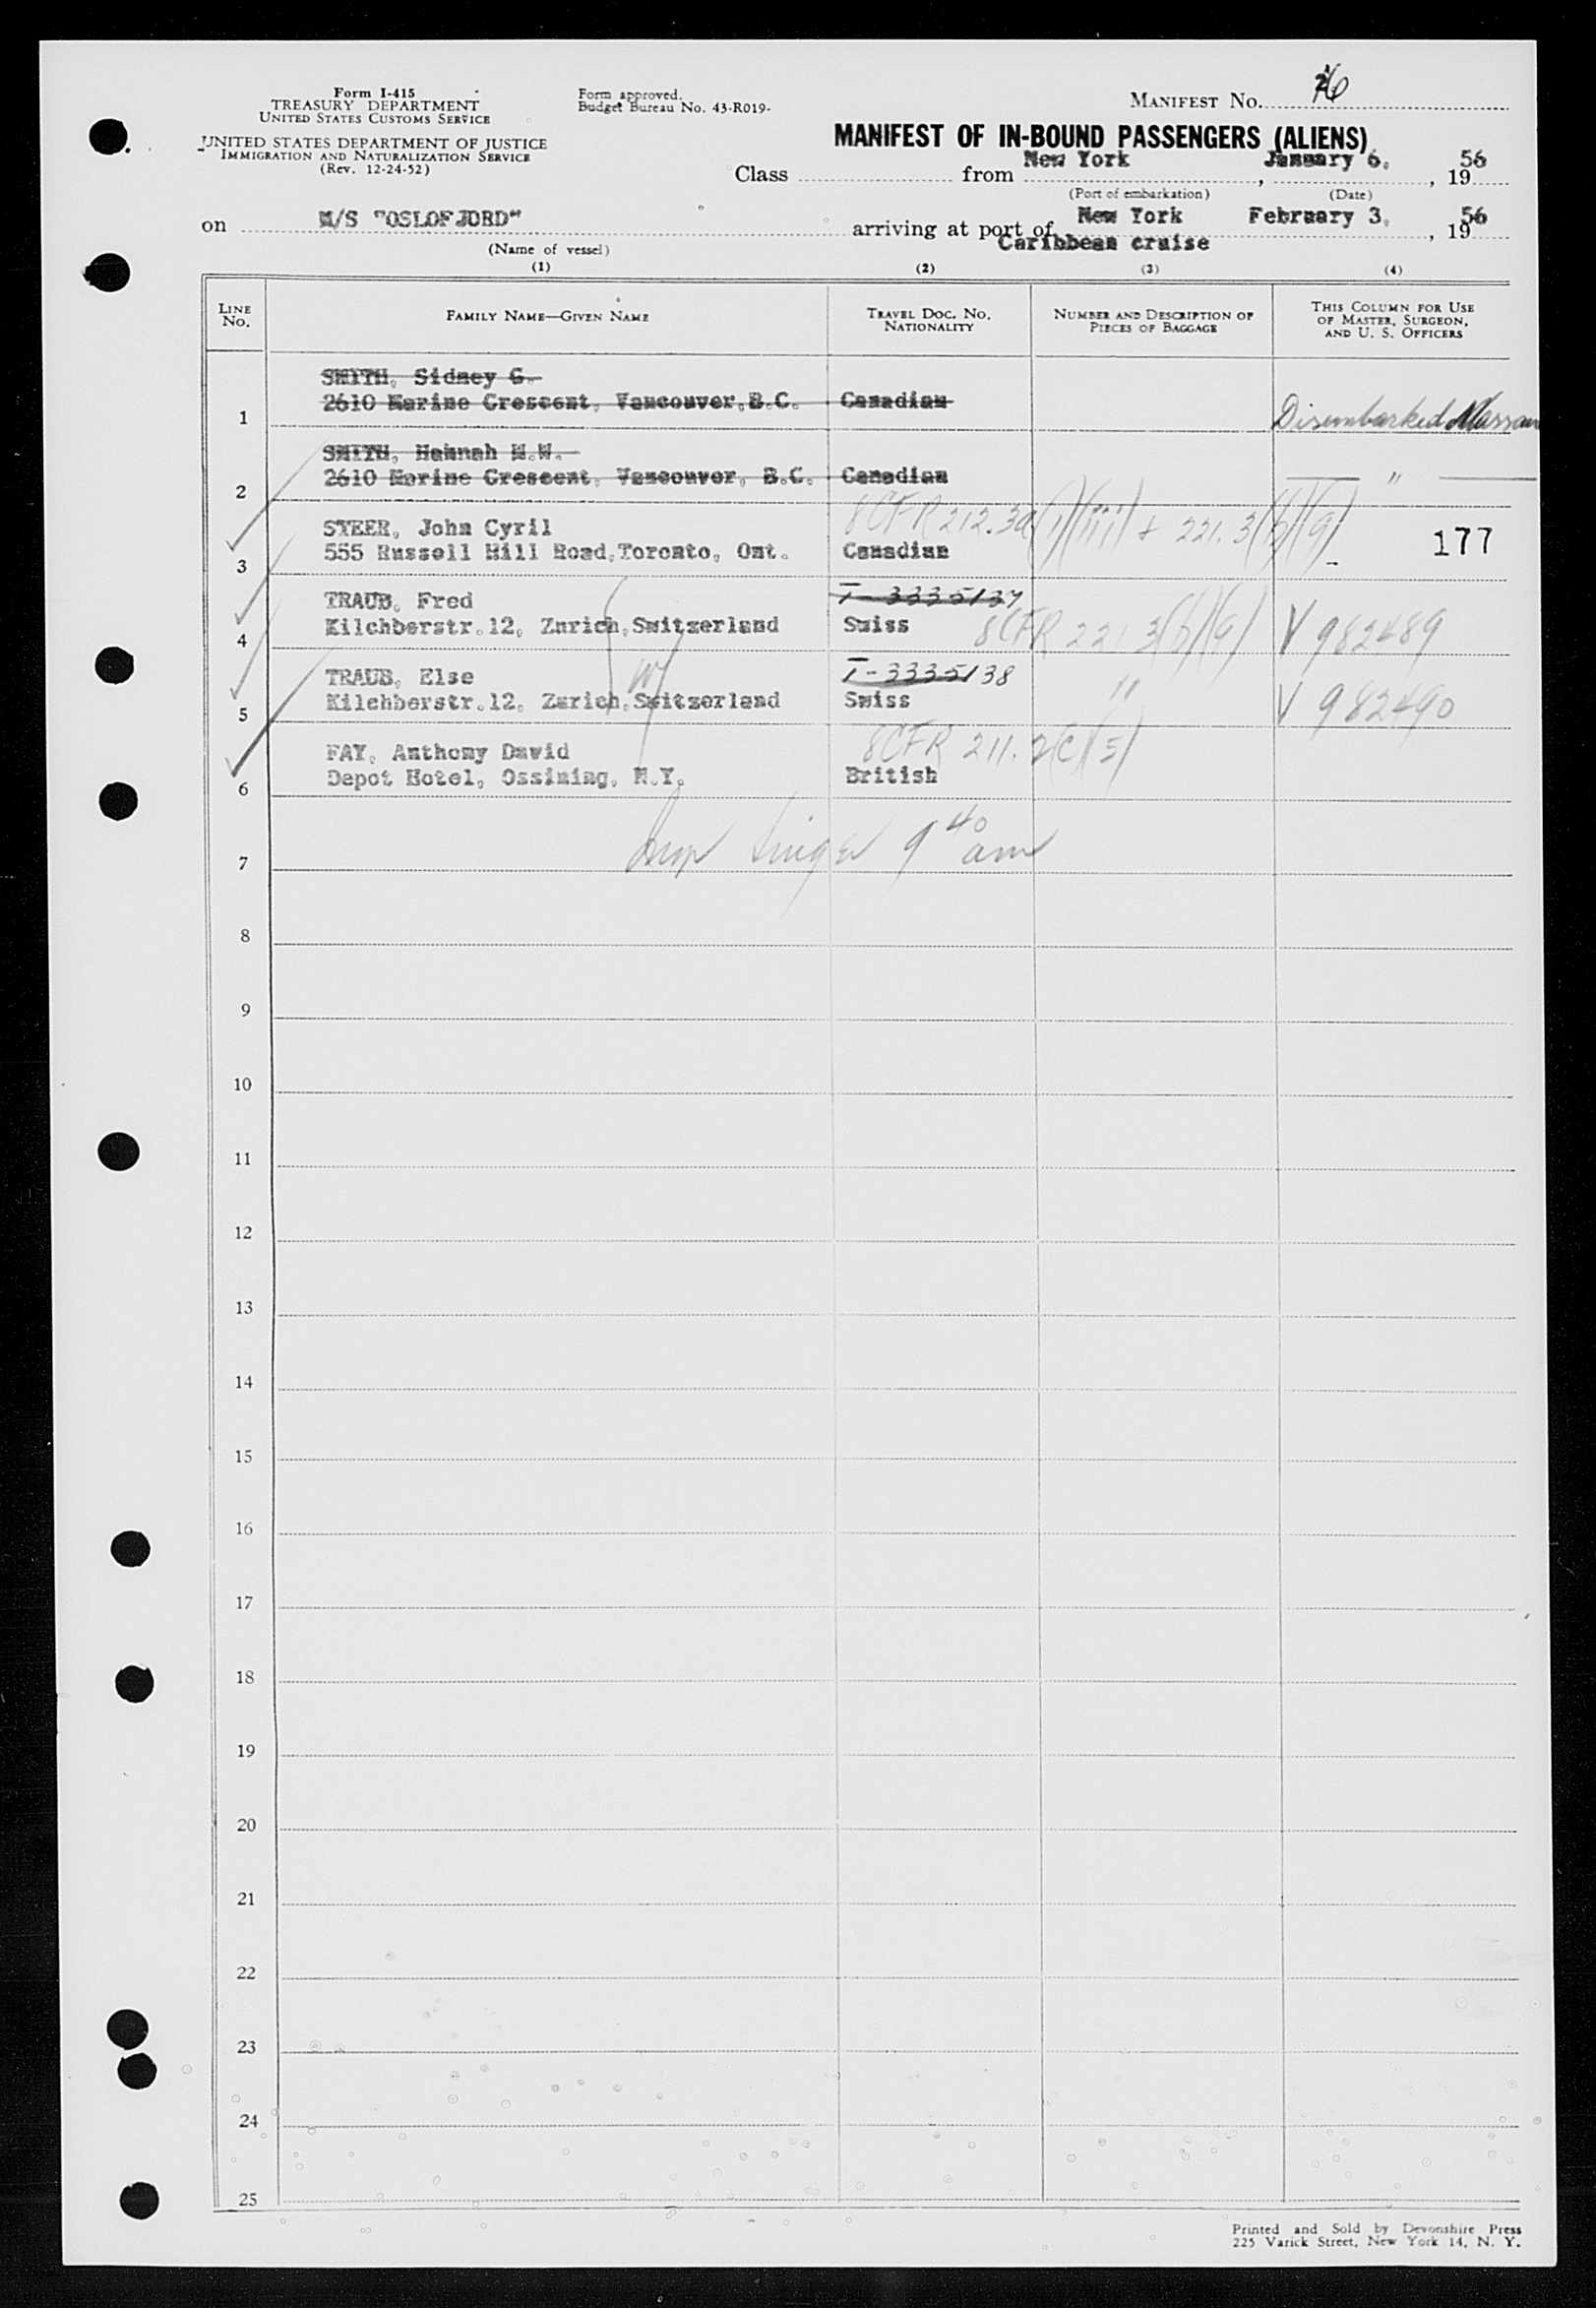 Form I-415
TREASURY DEPARTMENT
UNITED STATES CUSTOMS SERVICE
UNITED STATES DEPARTMENT OF JUSTICE
IMMIGRATION AND NATURALIZATION SERVICE
(Rev. 12-24-52)
Form approved.
Budget Bureau No. 43-R019-
MANIFEST No.
MANIFEST OF IN-BOUND PASSENGERS (ALIENS)
Class from New York, January 6, 1956
(Port of embarkation) (Date)
on M/S "OSLOFJORD" arriving at port of New York February 3, 1956
Caribbean cruise
(Name of vessel)
(1) (2) (3) (4)
LINE No. FAMILY NAME—GIVEN NAME TRAVEL DOC. No. NATIONALITY NUMBER AND DESCRIPTION OF PIECES OF BAGGAGE THIS COLUMN FOR USE OF MASTER, SURGEON, AND U. S. OFFICERS
SMITH, Sidney G.
1 2610 Marine Crescent, Vancouver,B.C. Canadian Disembarked Nassau
SMITH, Hannah M.W.
2 2610 Marine Crescent, Vancouver, B.C. Canadian "
STEER, John Cyril 8CFR 212.3a(1)(iii) + 221.3(b)(9)
3 555 Russell Hill Road,Toronto, Ont. Canadian 177
TRAUB, Fred T-3335137
4 Kilchberstr.12, Zurich,Switzerland Swiss 8CFR 221.3(b)(6) V 982489
TRAUB, Else T-3335138
5 Kilchberstr.12, Zurich,Switzerland Swiss " V 982490
FAY, Anthony David 8CFR 211.2(c)(5)
6 Depot Hotel, Ossining, N.Y. British
7 Insp Singer 9 40 am
8
9
10
11
12
13
14
15
16
17
18
19
20
21
22
23
24
25
Printed and Sold by Devonshire Press
225 Varick Street, New York 14, N. Y.